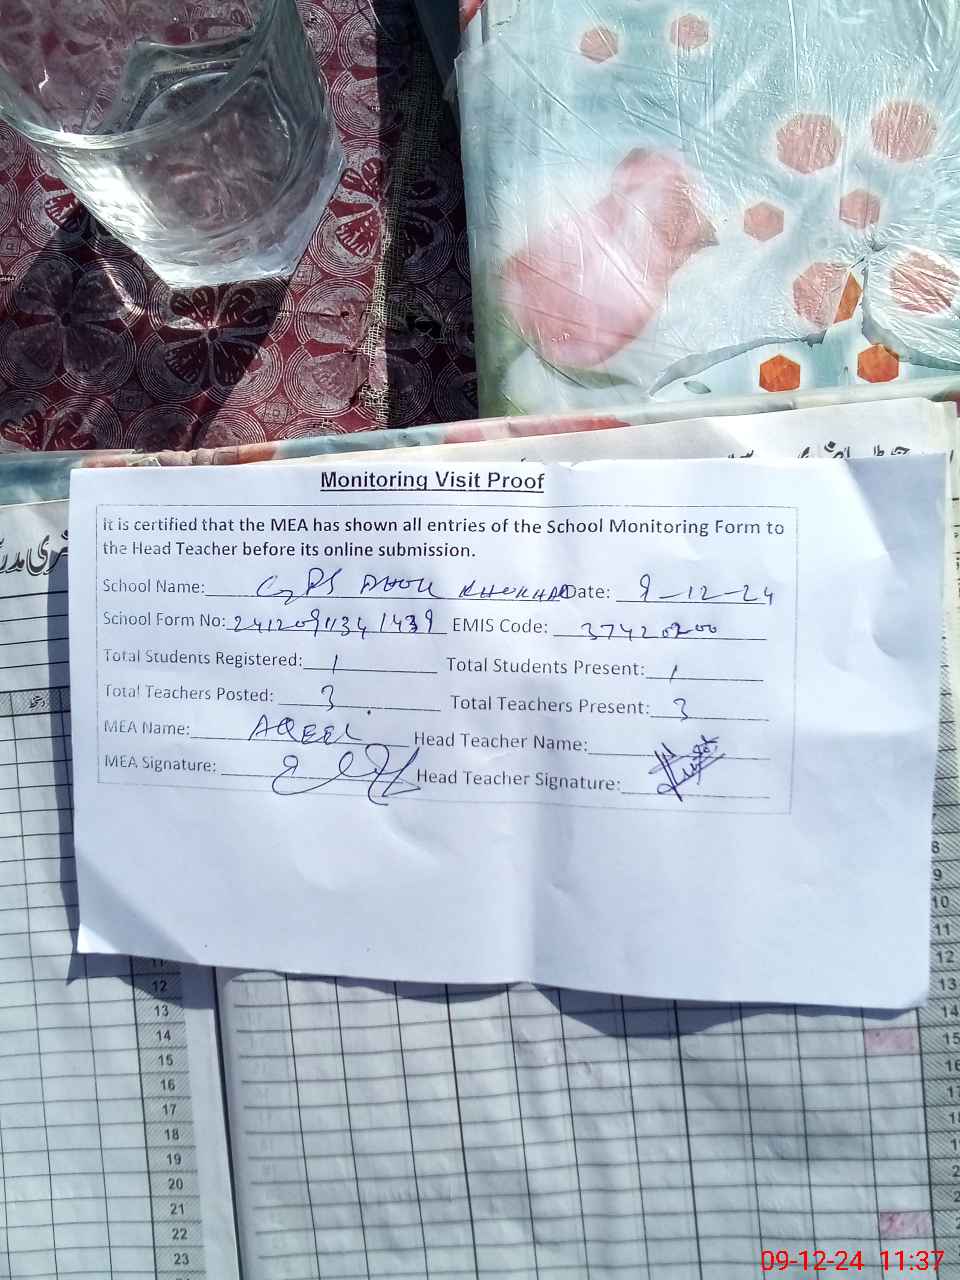 Monitoring Visit Proof
It is certified that the MEA has shown all entries of the School Monitoring Form to
the Head Teacher before its online submission.
School Name: GPS DHOK KHOKHAR Date: 9-12-24
School Form No: EMIS Code: 37420200
Total Students Registered: 1 Total Students Present: 1
Total Teachers Posted: 3 Total Teachers Present: 3
MEA Name: AQEEL Head Teacher Name:
MEA Signature: Head Teacher Signature:
8
9
10
11
11 12
12 13
13 14
14 15
15 16
16 17
17
18
19
20
21
22
23
09-12-24 11:37